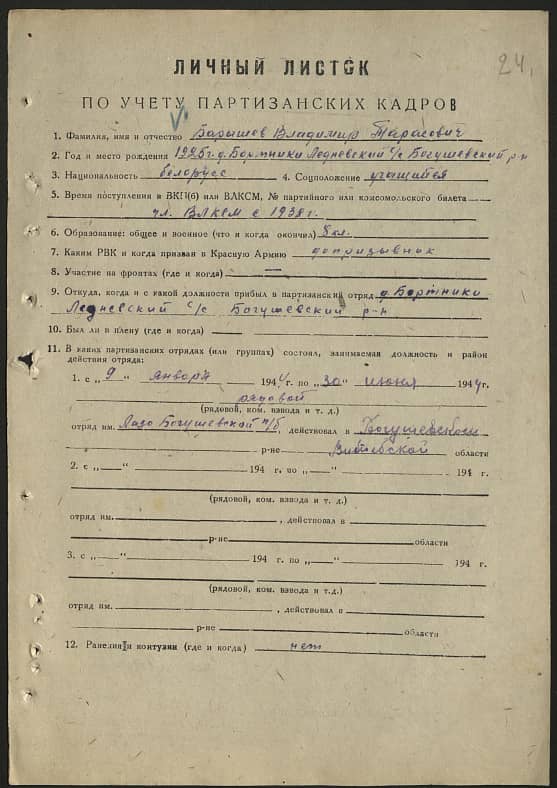 24.
ЛИЧНЫЙ ЛИСТОК
ПО УЧЕТУ ПАРТИЗАНСКИХ КАДРОВ
1. Фамилия, имя и отчество Барышов Владимир Тарасович
2. Год и место рождения 1925г. д. Бортники Ледневский с/с Богушевский р-н
3. Национальность белорусс 4. Соцположение учащийся
5. Время поступления в ВКП(б) или ВЛКСМ, № партийного или комсомольского билета
чл. ВЛКСМ с 1938г.
6. Образование: общее и военное (что и когда окончил) 8 кл.
7. Каким РВК и когда призван в Красную Армию допризывник
8. Участие на фронтах (где и когда) —
9. Откуда, когда и с какой должности прибыл в партизанский отряд д. Бортники
Ледневский с/с Богушевский р-н
10. Был ли в плену (где и когда)
11. В каких партизанских отрядах (или группах) состоял, занимаемая должность и район
действия отряда:
1. с „9 “ января 1944 г. по „30“ июня 1944г.
рядовой
(рядовой, ком. взвода и т. д.)
отряд им. Лазо Богушевской п/б, действовал в Богушевском
р-не Витебской области
2. с „—“ 194 г. по „—“ 194 г.
(рядовой, ком. взвода и т.д.)
отряд им. , действовал в
р-не области
3. с „—“ 194 г. по „—“ 194 г.
(рядовой, ком. взвода и т.д.)
отряд им. , действовал в
р-не области
12. Ранения и контузии (где и когда) нет